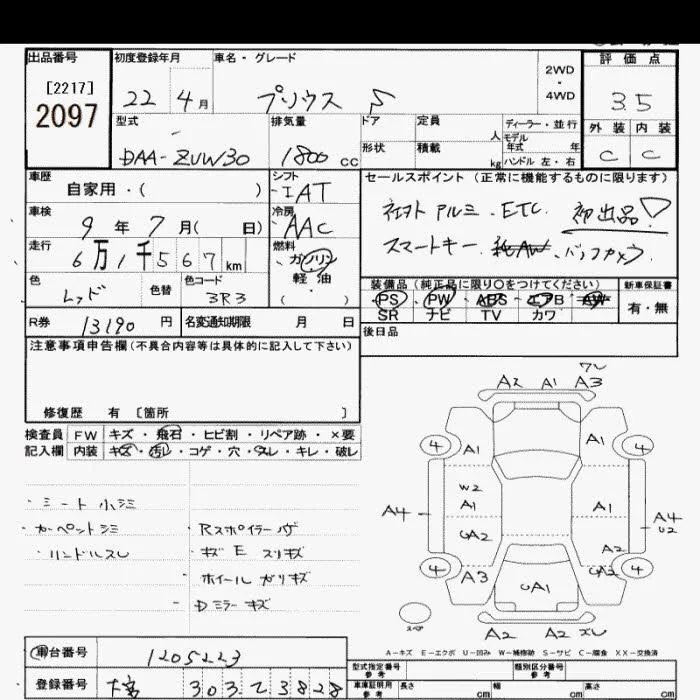 出品番号 初度登録年月 車名・グレード 評価点
[2217]
2097
22 4月 プリウス S
2WD
・
4WD
3.5
型式 排気量 ドア 定員 人 ディーラー・並行
モデル年式 年
外装 内装
DAA-ZUW30 1800 cc
形状 積載 kg ハンドル 左・右
C C
車歴 シフト セールスポイント (正常に機能するものに限ります)
自家用・( ) IAT
車検 冷房
9年 7月( 日) AAC
アルミ. ETC. 初出品
走行 燃料
6万1千567km ガソリン
軽油
・
( )
スマートキー.
色 色替 色コード
レッド 3R3
装備品 (純正品に限り○をつけてください) 新車保証書
PS ・ PW ・ ABS ・ エアB ・ AW
SR ナビ TV カワ
有・無
R券 13190 円 名変通知期限 月 日
後日品
注意事項申告欄(不具合内容等は具体的に記入して下さい)
修復歴 有 〔箇所 〕
検査員 FW キズ ・ 飛石 ・ ヒビ割 ・ リペア跡 ・ ×要
記入欄 内装 キズ・汚レ・コゲ・穴・スレ・キレ・破レ
・シート小シミ
・カーペットシミ
・ハンドルスレ
・Rスポイラー
・キズ E スリキズ
・ホイールガリキズ
-Dミラーキズ
A2 A1 A3
4 A1 A1 4
W2
A1 A1
A4 A4
U2
UA2 A2
4 A3 UA1 UA2 4
スペア
A2 A2
A-キズ E-エクボ U-凹み W-補修跡 S-サビ C-腐食 XX-交換済
車台番号 1205223
登録番号 303 23828
型式指定番号
参考
類別区分番号
参考
車庫証明用
参考
長さ cm 幅 cm 高さ cm